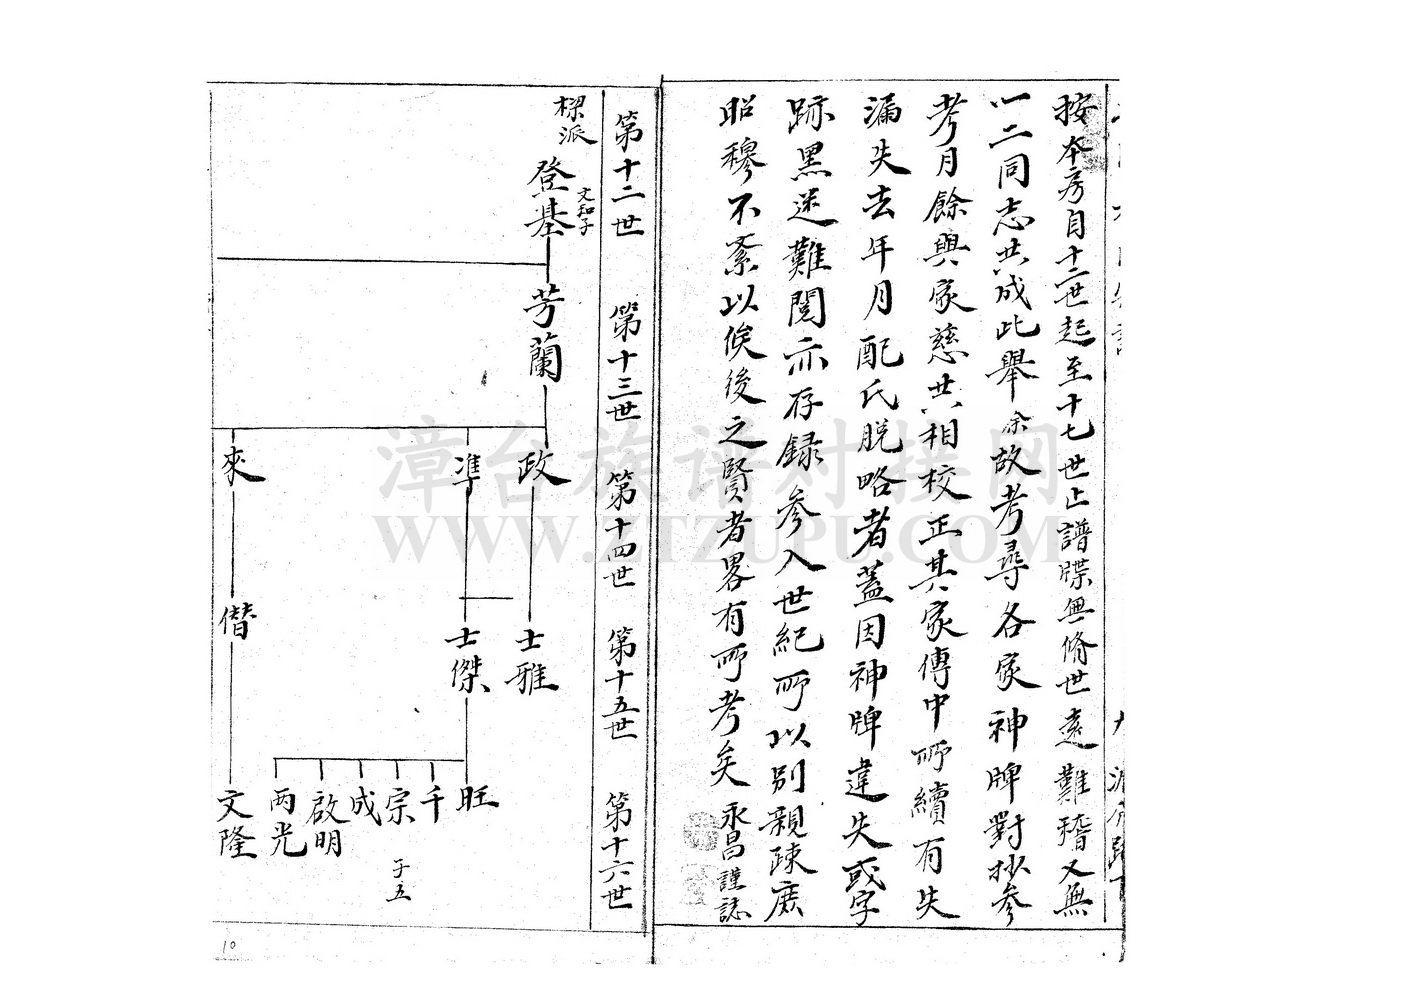 按本房自十二世起至十七世止譜牒無脩世遠難稽又無
一二同志共成此舉余故考尋各家神牌對抄參
考月餘與家慈共相校正其家傳中所續有失
漏失去年月配氏脫略者蓋因神牌違失或字
跡黑迷難閱亦存録参入世紀所以別親疎庶
昭穆不紊以俟後之賢者畧有所考矣 永昌謹誌
第十二世 第十三世 第十四世 第十五世 第十六世
樑派
登基 文和子
芳蘭
政 士雅
準 士傑
旺
千
宗 子五
成
啟明
两光
來 僣 文隆
10
漳台族谱对接网
WWW.ZTZUPU.COM